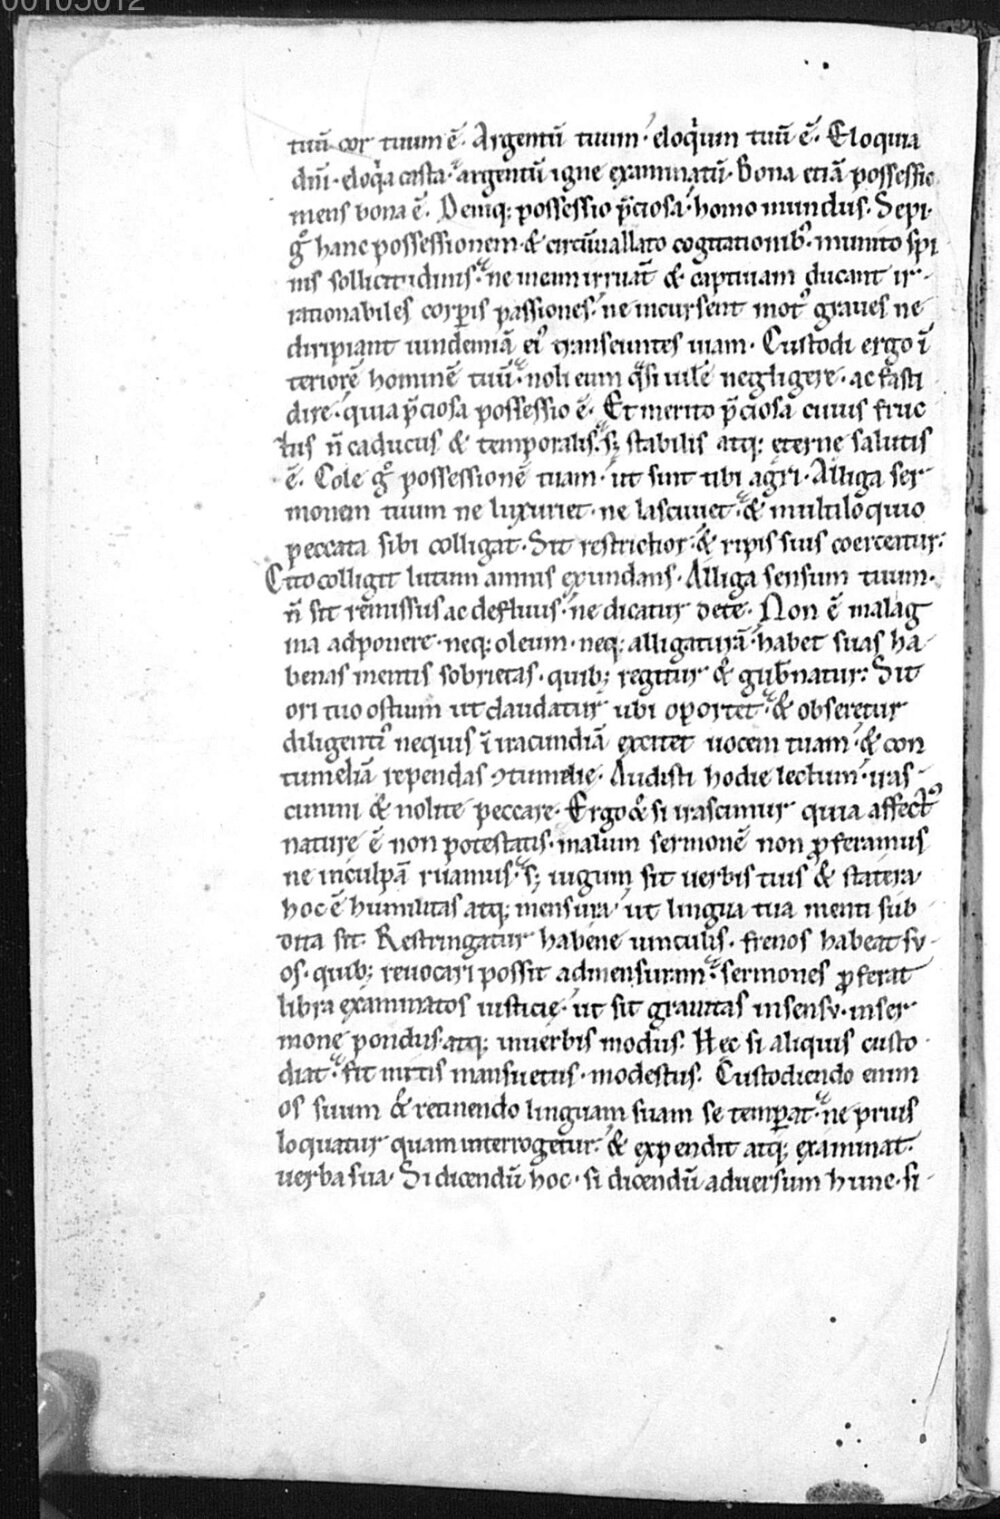 00105012
tuū cor tuum ē. Argentū tuum· eloq̇um tuū ē. Eloquia
dn̄i· eloq̇a casta· argentū igne examinatū. Bona etiā possessio
mens bona ē. Deniq; possessio p̄ciosa· homo mundus. Sepi·
gͦ hanc possessionem· & circūuallato cogitationib;· munito spi
nis sollicitudinis· ne in eam irruāt & captiuam ducant ir-
rationabiles corꝑis passiones· ne incursent motꝰ graues ne
diripiant uindemiā eiꝰ transeuntes uiam. Custodi ergo ī
teriorē hominē tuū· noli eum q̇si uilē negligere· ac fasti
dire· quia p̄ciosa possessio ē. Et merito p̄ciosa cuius fruc
tus n̄ caducus & temporalis· s; stabilis atq; eterne salutis
ē. Cole gͦ possessionē tuam· ut sint tibi agri. Alliga ser
monem tuum ne luxuriet· ne lasciuiet· & multiloquio
peccata sibi colligat. Sit restrictior· & ripis suis coerceatur·
Cito colligit lutum amnis exundans. Alliga sensum tuum·
n̄ sit remissus ac defluus· ne dicatur de te. Non ē malag
ma adponere· neq; oleum· neq; alligaturā· habet suas ha-
benas mentis sobrietas· quib; regitur & gub̄natur. Sit
ori tuo ostium ut claudatur ubi oportet· & obseretur
diligentiꝰ nequis ī iracundiā excitet uocem tuam· & con
tumeliā rependas ꝯtumelie. Audisti hodie lectum· iras-
cimini & nolite peccare. Ergo & si irascimur quia affectꝰ
nature ē non potestatis· malum sermonē non ꝓferamus
ne in culpā ruamus· s; iugum sit uerbis tuis & statera·
hoc ē humilitas atq; mensura· ut lingua tua menti sub
dita sit. Restringatur habene uinculis· frenos habeat su-
os· quib; reuocari possit ad mensuram· sermones ꝓferat
libra examinatos iusticię· ut sit grauitas in sensu· in ser
mone pondus· atq; in uerbis modus. Hec si aliquis custo·
diat· fit mitis mansuetus· modestus. Custodiendo enim
os suum & retinendo linguam suam se temperat· ne prius
loquatur quam interrogetur· & expendit atq; examinat·
uerba sua· Si dicendū hoc· si dicendū aduersum hunc· si-